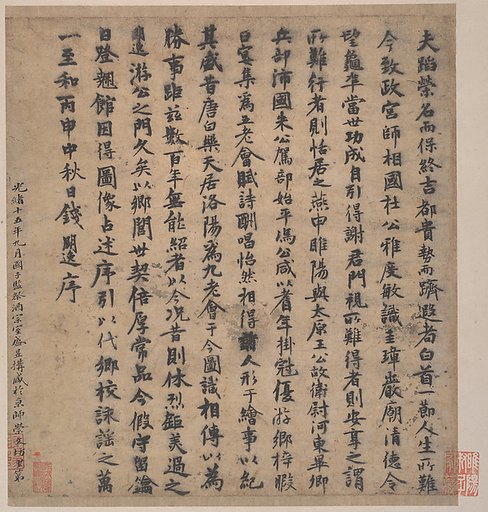 夫蹈榮名而保終吉都貴勢而躋遐耇白首一節人生所難
今致政宮師相國杜公雅度敏識圭璋巖廟清德令
望龜準當世功成自引得謝君門視所難得者則安享之謂
所難行者則恬居之燕申睢陽與太原王公故衛尉河東畢卿
兵部沛國朱公駕部始平馮公咸以耆年掛冠優游鄉梓暇
日宴集為五老會賦詩酬唱怡然相得諸人形于繪事以紀
其盛昔唐白樂天居洛陽為九老會于今圖識相傳以為
勝事距茲數百年無能紹者以今況昔則休烈鉅美過之
明逸游公之門久矣以鄉閭世契倍厚常品今假守留鑰
日登翹館因得圖像占述序引以代鄉校詠謠之萬
一至和丙申中秋日錢明逸序
光緒十五年九月國子監祭酒宗室盛昱搆藏於京師崇文坊弟